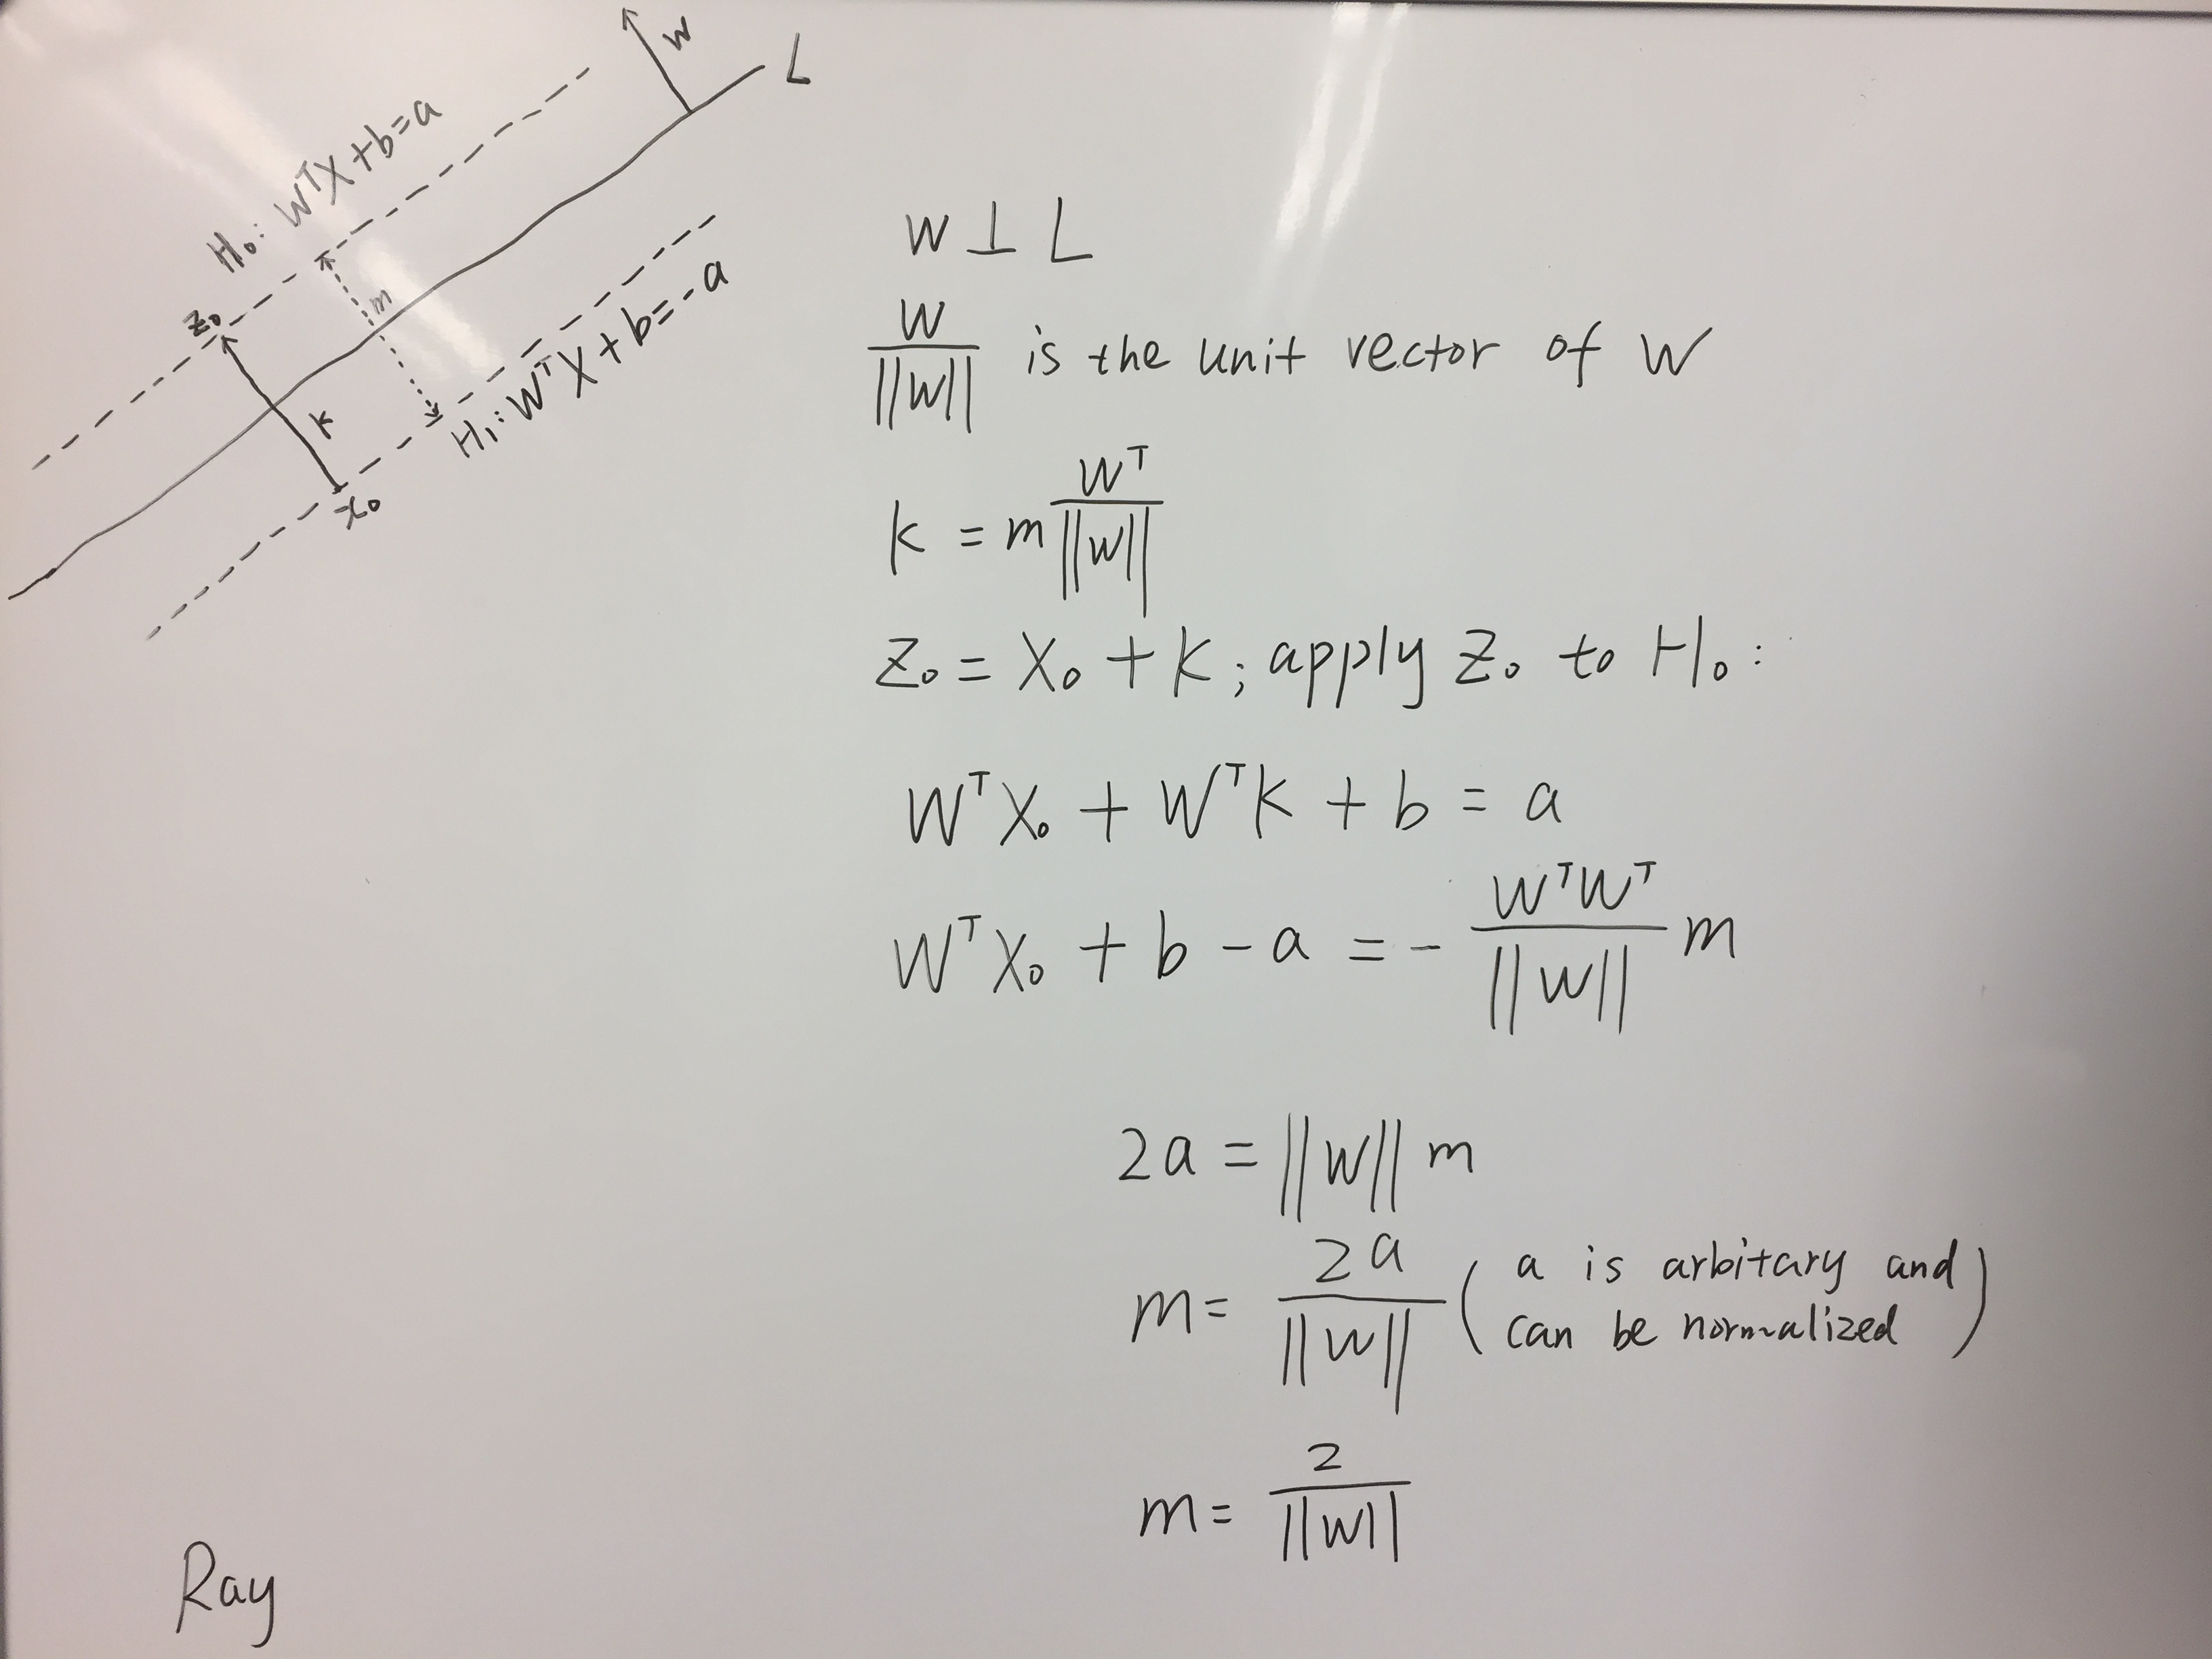 W
L
H₀: WᵀX+b=a
Z₀
m
K
H₁: WᵀX+b=-a
x₀
W ⊥ L
W/||W|| is the unit vector of W
K = m Wᵀ/||W||
Z₀ = X₀ + K ; apply Z₀ to H₀ :
WᵀX₀ + WᵀK + b = a
WᵀX₀ + b - a = - WᵀWᵀ/||W|| m
2a = ||W|| m
m = 2a/||W|| ( a is arbitary and
can be normalized )
m = 2/||W||
Ray